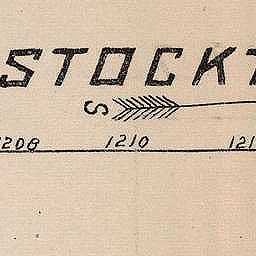 STOCKT
S
1208 1210 121